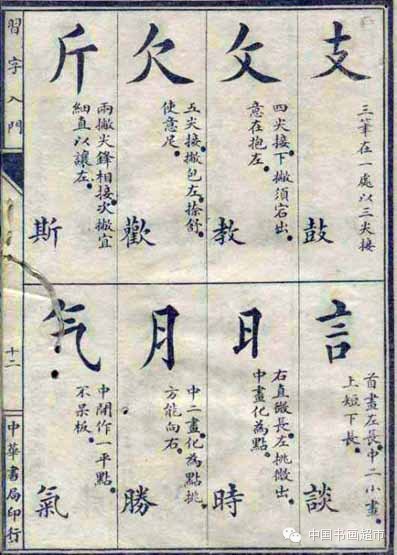 習字入門
支
三筆在一處以三尖接
鼓
攵
四尖接下撇須宕出
意在抱左
教
欠
五尖接撇包左捺舒
使意足
歡
斤
兩撇尖鋒相接次撇宜
細直以讓左
斯
言
首畫左長中二小畫
上短下長
談
日
右直微長左挑微出
中畫化為點
時
月
中二畫化為點挑
方能向右
勝
气
中閒作一平點
不呆板
氣
十二
中華書局印行
中国书画超市